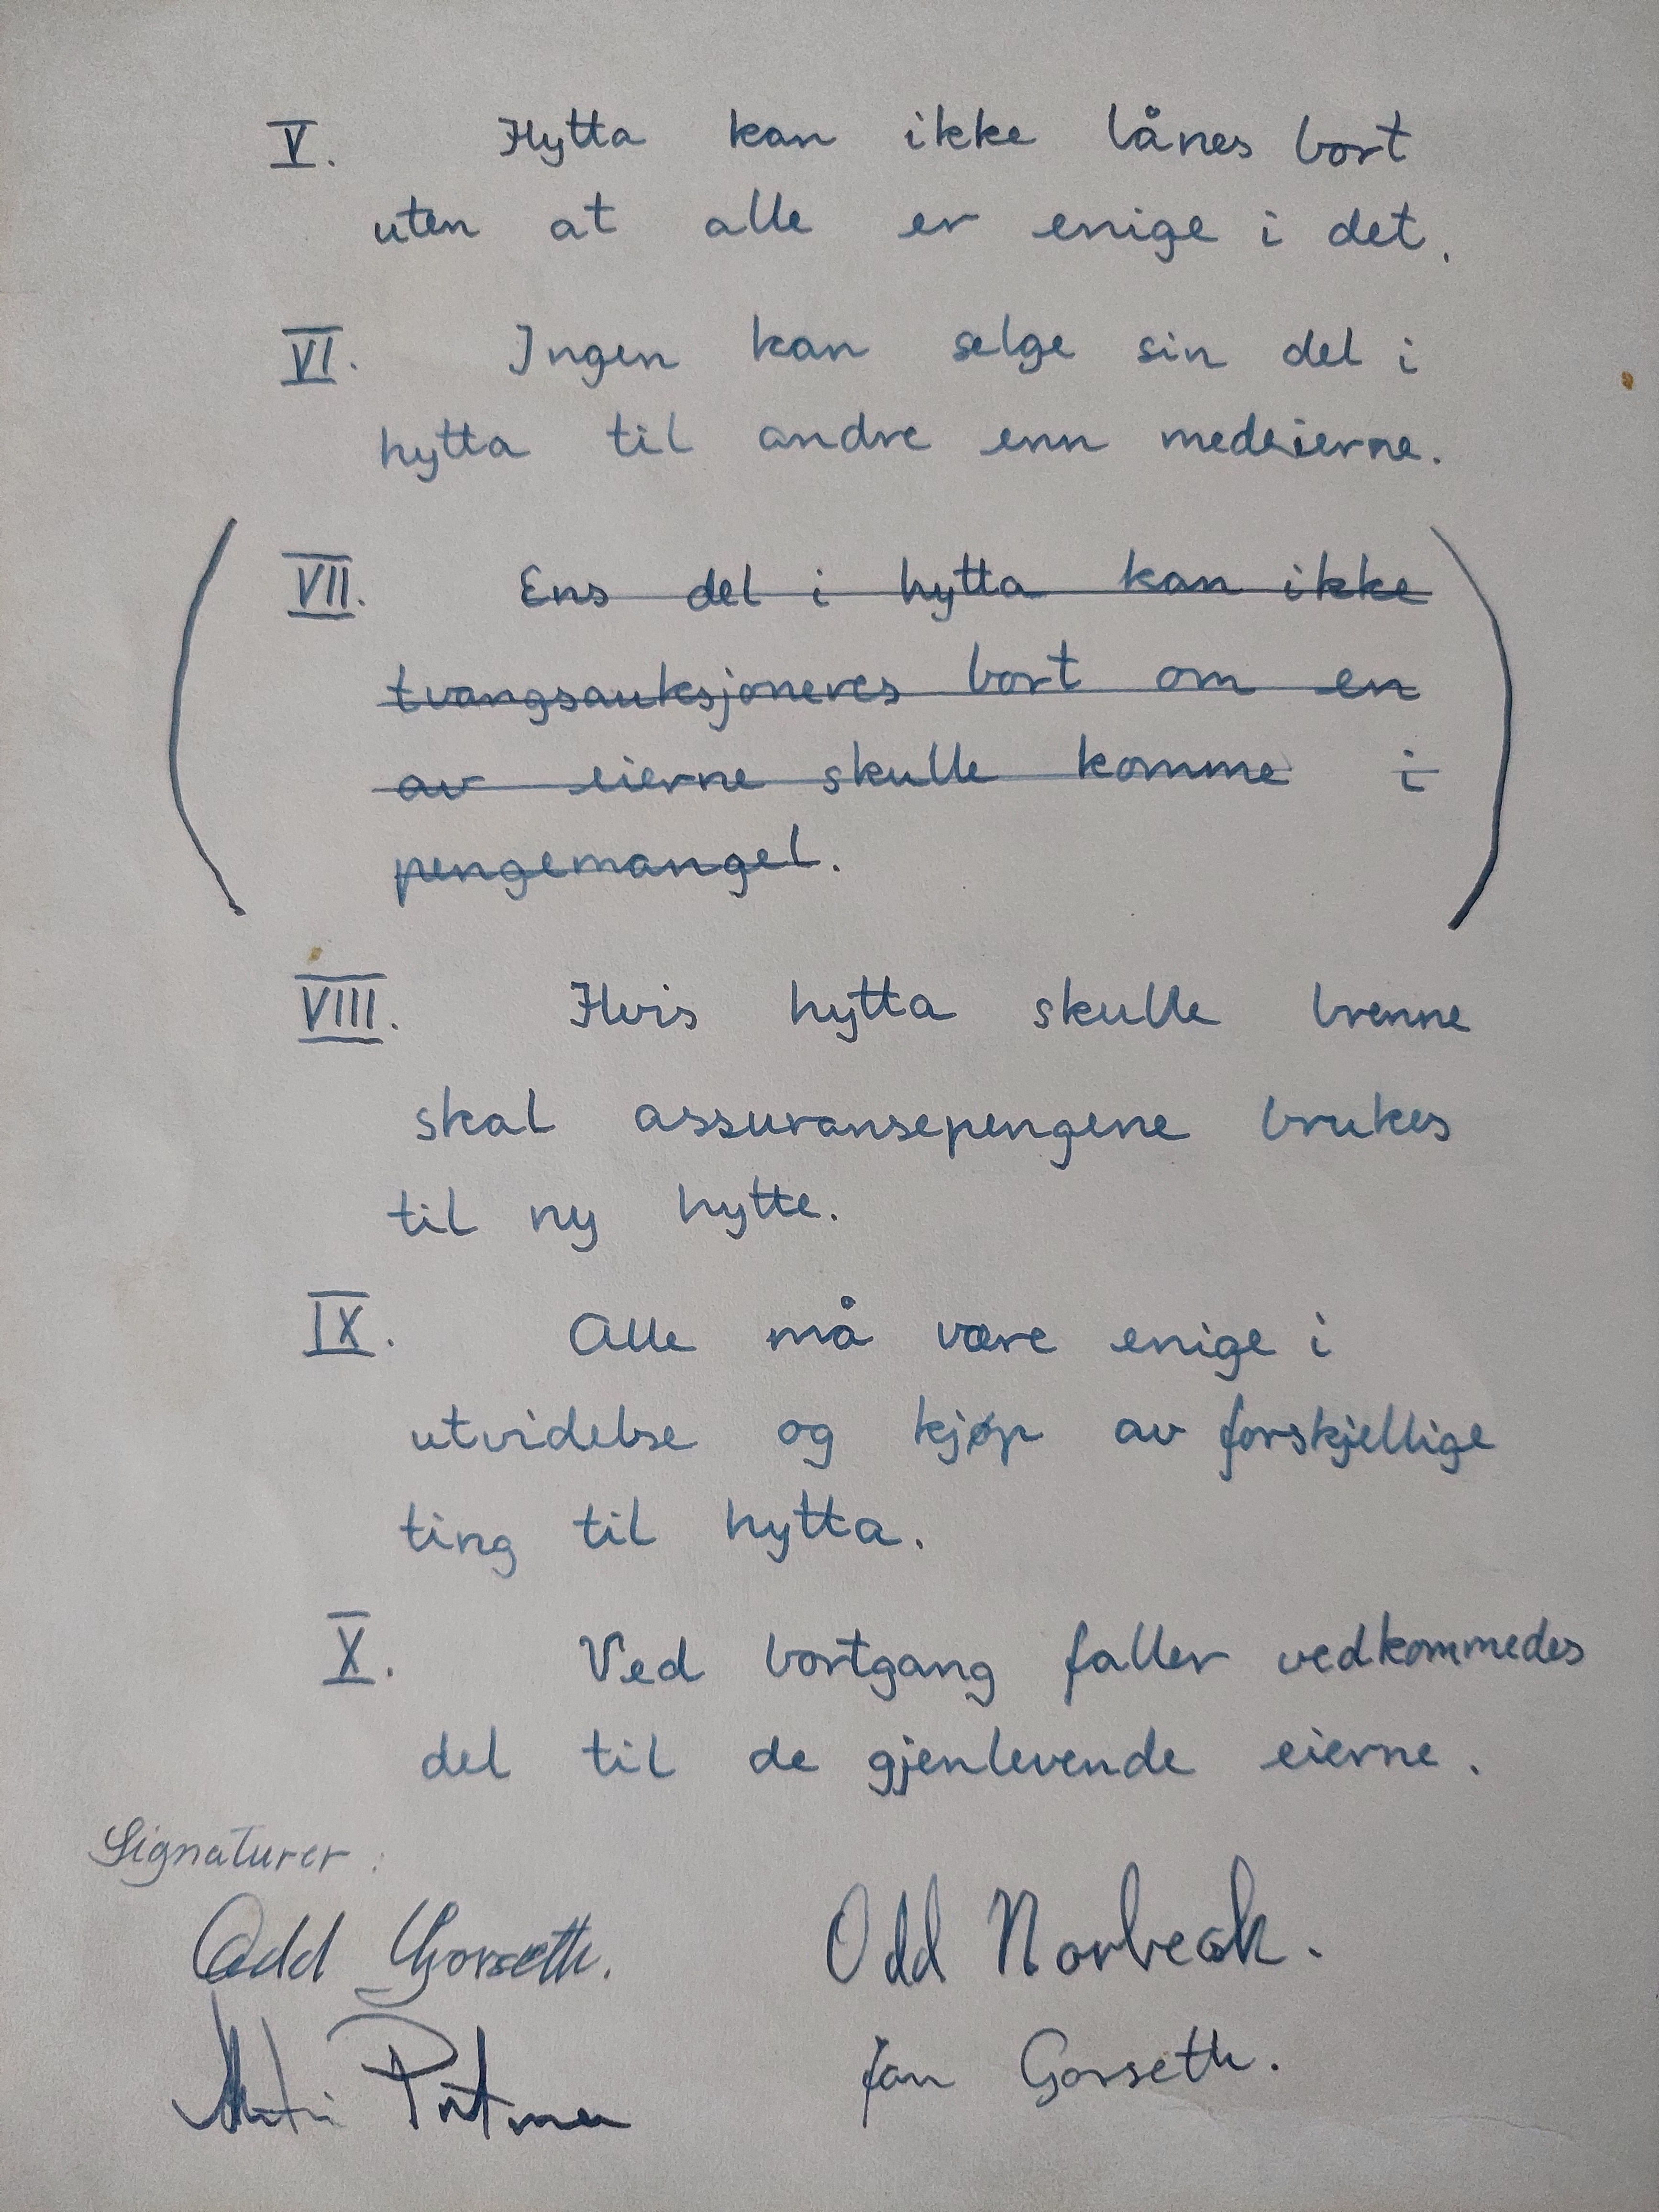 V. Hytta kan ikke lånes bort
uten at alle er enige i det.
VI. Ingen kan selge sin del i
hytta til andre enn medeierne.
VII. Ens del i hytta kan ikke
tvangsauksjoneres bort om en
av eierne skulle komme i
pengemangel.
VIII. Hvis hytta skulle brenne
skal assuransepengene brukes
til ny hytte.
IX. Alle må være enige i
utvidelse og kjøp av forskjellige
ting til hytta.
X. Ved bortgang faller vedkommedes
del til de gjenlevende eierne.
Signaturer:
Odd Gorseth.
Odd Norbeck.
Jan Gorseth.